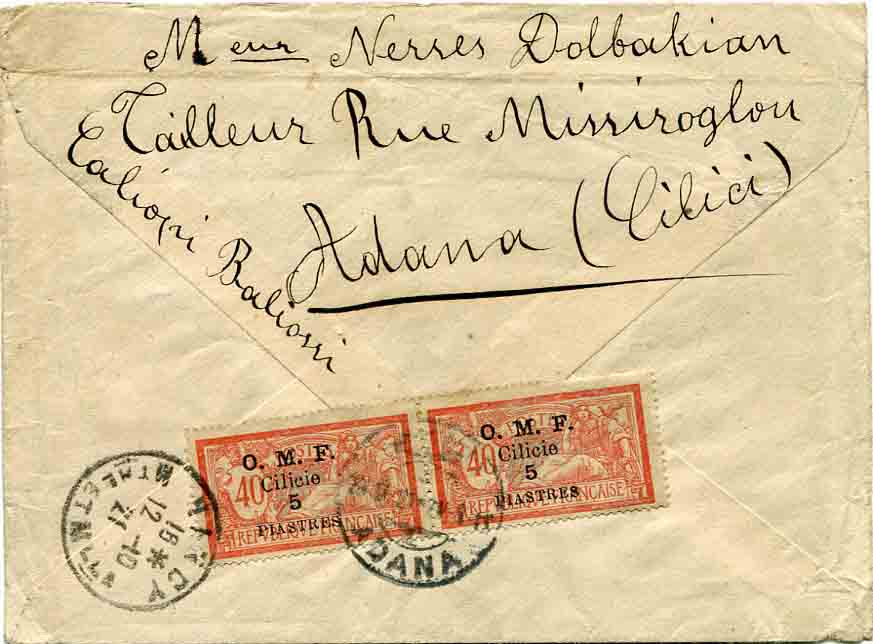 Meur Nerses Dolbakian
Tailleur Rue Missiroglou
Adana (Cilici)
Caliopi Baliossi
O. M. F.
Cilicie
5
PIASTRES
40
REPUBLIQUE FRANÇAISE
O. M. F.
Cilicie
5
PIASTRES
40
REPUBLIQUE FRANÇAISE
ADANA
18 *
12 -10
21